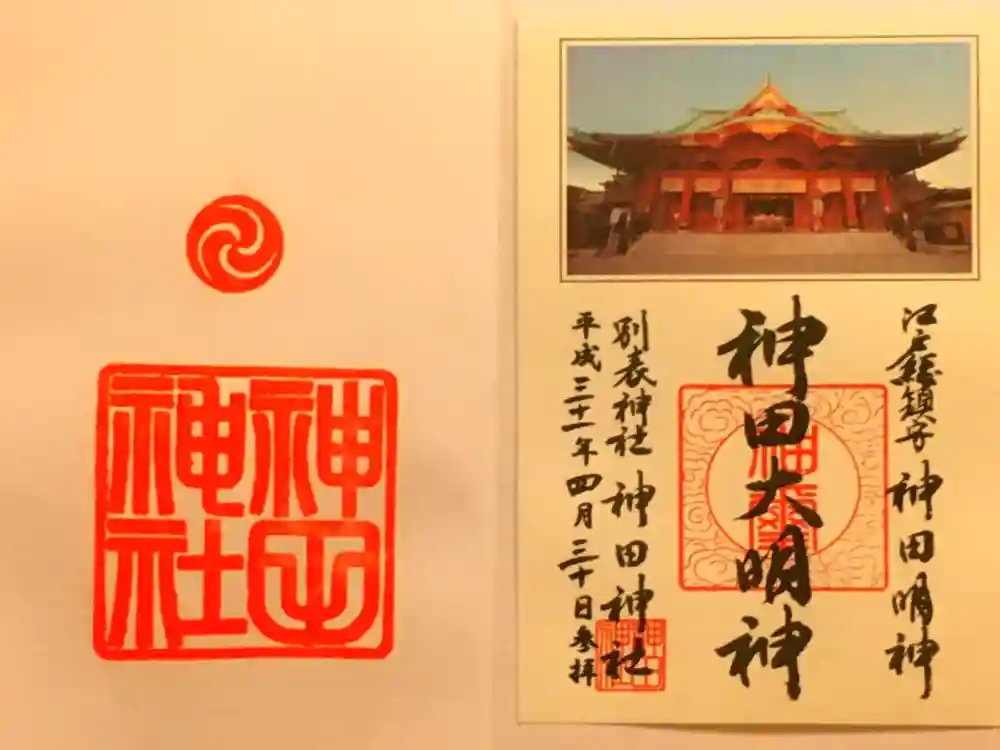 江戸総鎮守 神田明神
神田大明神
別表神社 神田神社
平成三十一年四月三十日参拝
神田神社
神田神社